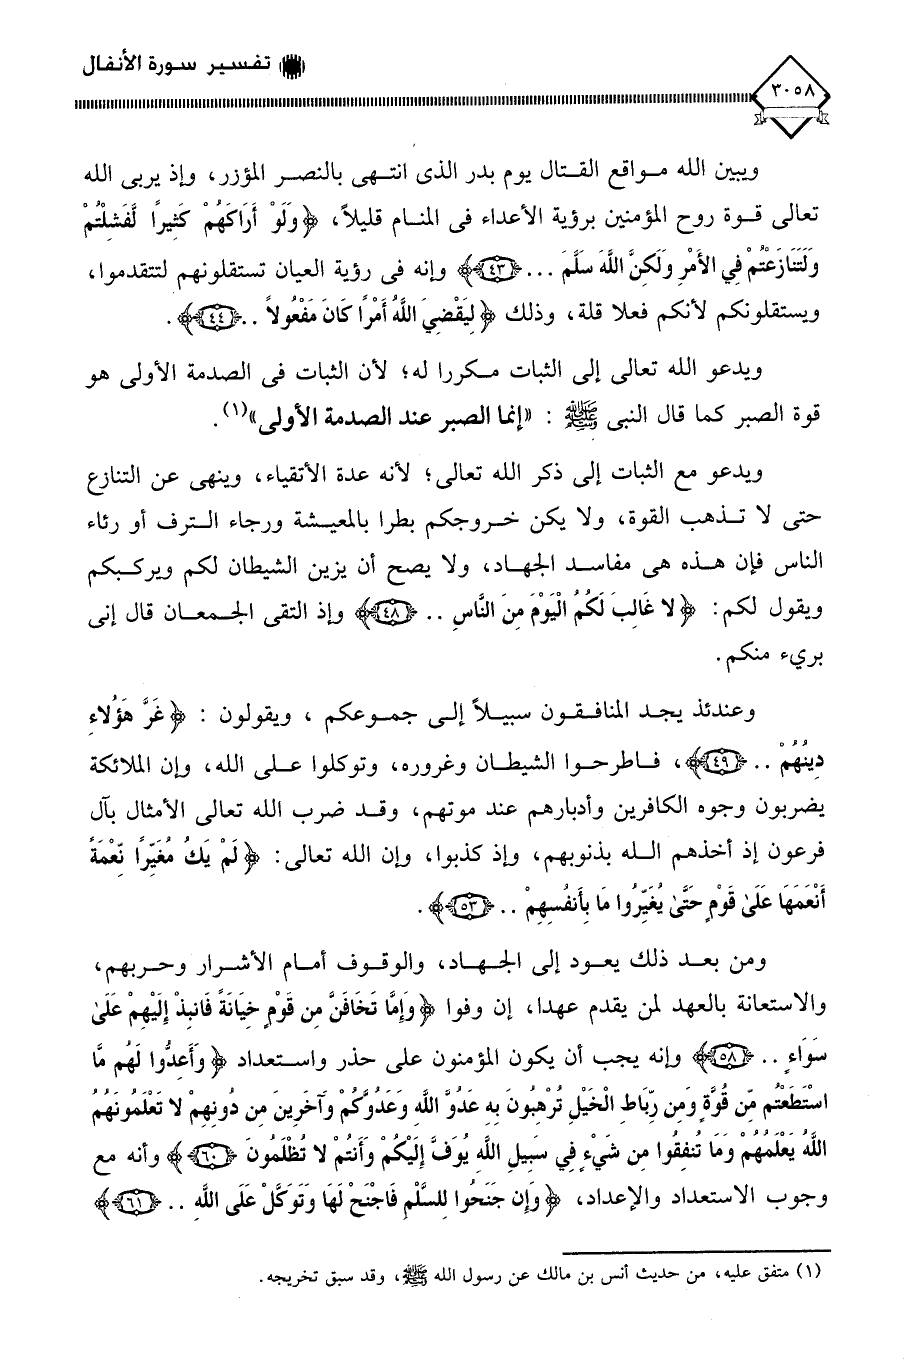 تفسير سورة الأنفال
٣٠٥٨
ويبين الله مواقع القتال يوم بدر الذى انتهى بالنصر المؤزر، وإذ يربى الله
تعالى قوة روح المؤمنين برؤية الأعداء فى المنام قليلاً، ﴿ وَلَوْ أَرَاكَهُمْ كَثِيرًا لَّفَشِلْتُمْ
وَلَتَنَازَعْتُمْ فِي الأَمْرِ وَلَكِنَّ اللَّهَ سَلَّمَ ... ﴿٤٣﴾﴾ وإنه فى رؤية العيان تستقلونهم لتتقدموا،
ويستقلونكم لأنكم فعلا قلة، وذلك ﴿ لِيَقْضِيَ اللَّهُ أَمْرًا كَانَ مَفْعُولاً .. ﴿٤٤﴾﴾ .
ويدعو الله تعالى إلى الثبات مكررا له؛ لأن الثبات فى الصدمة الأولى هو
قوة الصبر كما قال النبى ﷺ : «إنما الصبر عند الصدمة الأولى»(١).
ويدعو مع الثبات إلى ذكر الله تعالى؛ لأنه عدة الأتقياء، وينهى عن التنازع
حتى لا تذهب القوة، ولا يكن خروجكم بطرا بالمعيشة ورجاء الترف أو رئاء
الناس فإن هذه هى مفاسد الجهاد، ولا يصح أن يزين الشيطان لكم ويركبكم
ويقول لكم: ﴿ لا غَالِبَ لَكُمُ الْيَوْمَ مِنَ النَّاسِ .. ﴿٤٨﴾﴾ وإذ التقى الجمعان قال إنى
بريء منكم.
وعندئذ يجد المنافقون سبيلاً إلى جموعكم ، ويقولون : ﴿ غَرَّ هَؤُلاءِ
دِينُهُمْ .. ﴿٤٩﴾﴾، فاطرحوا الشيطان وغروره، وتوكلوا على الله، وإن الملائكة
يضربون وجوه الكافرين وأدبارهم عند موتهم، وقد ضرب الله تعالى الأمثال بآل
فرعون إذ أخذهم الله بذنوبهم، وإذ كذبوا، وإن الله تعالى: ﴿ لَمْ يَكُ مُغَيِّرًا نِّعْمَةً
أَنْعَمَهَا عَلَىٰ قَوْمٍ حَتَّىٰ يُغَيِّرُوا مَا بِأَنفُسِهِمْ .. ﴿٥٣﴾﴾ .
ومن بعد ذلك يعود إلى الجهاد، والوقوف أمام الأشرار وحربهم،
والاستعانة بالعهد لمن يقدم عهدا، إن وفوا ﴿ وَإِمَّا تَخَافَنَّ مِن قَوْمٍ خِيَانَةً فَانبِذْ إِلَيْهِمْ عَلَىٰ
سَوَاءٍ .. ﴿٥٨﴾﴾ وإنه يجب أن يكون المؤمنون على حذر واستعداد ﴿ وَأَعِدُّوا لَهُم مَّا
اسْتَطَعْتُم مِّن قُوَّةٍ وَمِن رِّبَاطِ الْخَيْلِ تُرْهِبُونَ بِهِ عَدُوَّ اللَّهِ وَعَدُوَّكُمْ وَآخَرِينَ مِن دُونِهِمْ لا تَعْلَمُونَهُمُ
اللَّهُ يَعْلَمُهُمْ وَمَا تُنفِقُوا مِن شَيْءٍ فِي سَبِيلِ اللَّهِ يُوَفَّ إِلَيْكُمْ وَأَنتُمْ لا تُظْلَمُونَ ﴿٦٠﴾﴾ وأنه مع
وجوب الاستعداد والإعداد، ﴿ وَإِن جَنَحُوا لِلسَّلْمِ فَاجْنَحْ لَهَا وَتَوَكَّلْ عَلَى اللَّهِ .. ﴿٦١﴾﴾
(١) متفق عليه، من حديث أنس بن مالك عن رسول الله ﷺ، وقد سبق تخريجه.